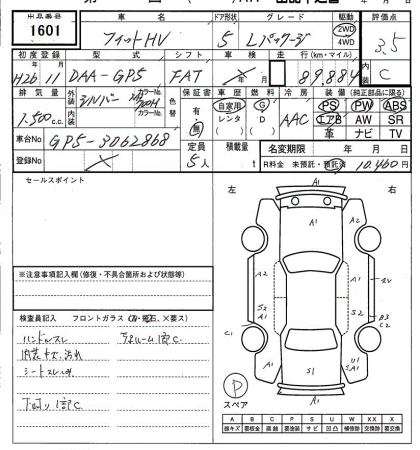 出品番号 車名 ドア形状 グレード 駆動 評価点
1601 フィットHV 5 Lパッケージ 2WD 4WD 3.5
初度登録 型式 シフト 車検 走行(km・マイル) 内装
H26年11月 DAA-GP5 FAT 年 月 89,884 C
排気量 外装 シルバー カラーNo. 色替 保証書 車歴 燃料 冷房 装備(純正部品に限る)
1,500c.c. 内装 カラーNo. 有・無 自家用 レンタ G D AAC PS PW ABS
エアB AW SR
革 ナビ TV
車台No GP5-3062868 定員 積載量 名変期限 年 月 日
登録No 5人 t R料金 未預託・預託済 10,460円
セールスポイント
左 右
A1
A1
A2 A2
S2 A1 S2 B3 C2
C1
A1 S1 U1 SA1
A1
※注意事項記入欄(修復・不具合箇所および状態等)
検査員記入 フロントガラス(A・飛石、×要ス)
ハンドルスレ
内装キズ、汚れ
下回り1部C
P
スペア
A B C P S U W X XX
線キズ 要板金 腐蝕 要塗装 サビ 凹凸 補修跡 交換跡 要交換